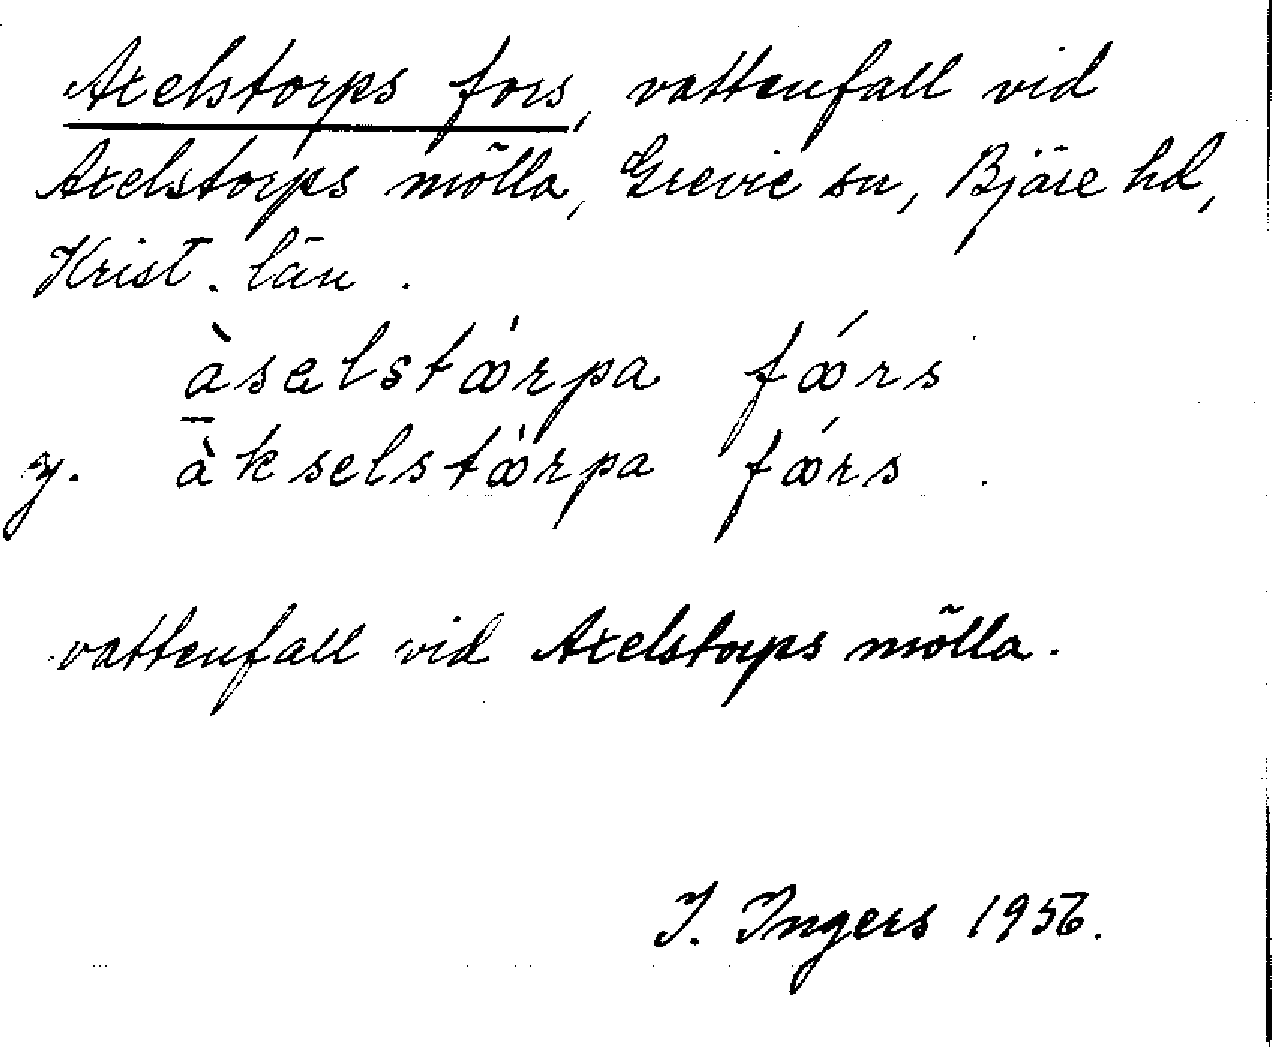 Axelstorps fors, vattenfall vid
Axelstorps mölla, Grevie sn, Bjäre hd,
Krist. län.
àselstœ̀rpa fœ́rs
y. àkselstœ̀rpa fœ́rs.
vattenfall vid Axelstorps mölla.
I. Ingers 1956.